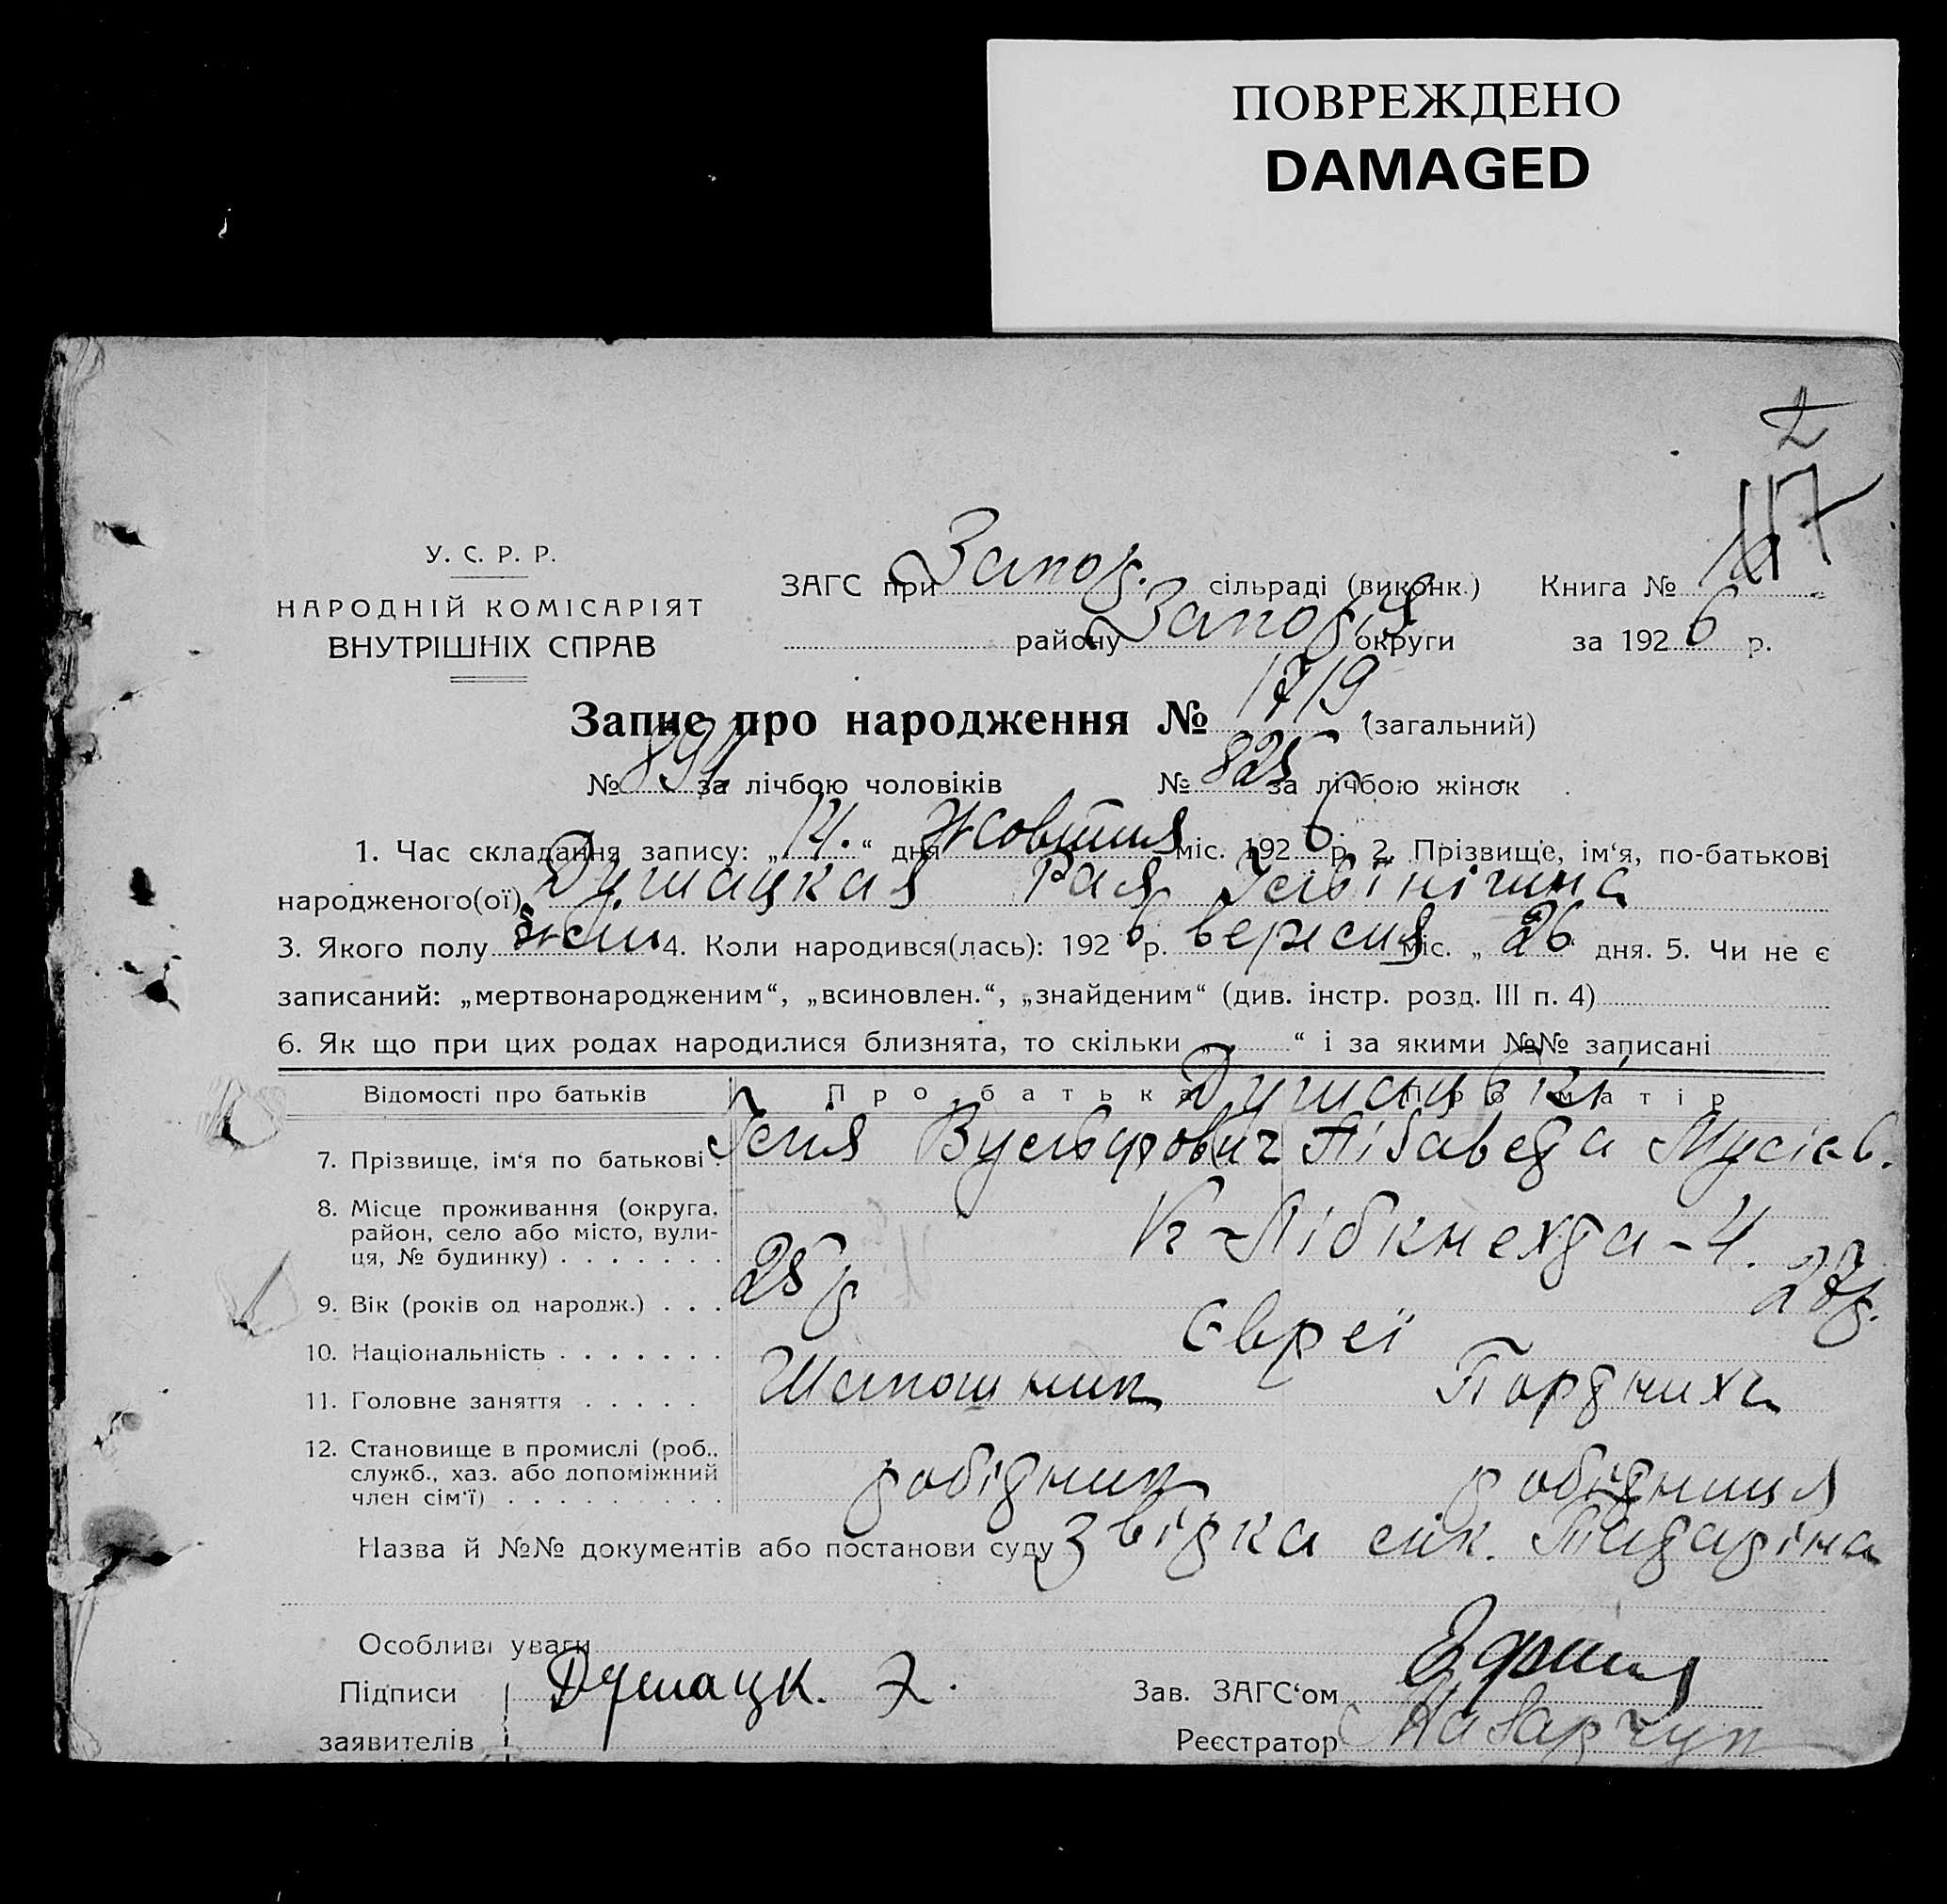 ПОВРЕЖДЕНО
DAMAGED
117
У. С. Р. Р.
НАРОДНІЙ КОМІСАРІЯТ
ВНУТРІШНІХ СПРАВ
ЗАГС при Запор. сільраді (виконк.) Книга №
району Запор. округи за 1926 р.
Запис про народження № 1719 (загальний)
№ 894 за лічбою чоловіків № 825 за лічбою жінок
1. Час складання запису: „14." дня Жовтня міс. 1926 р. 2. Прізвище, ім'я, по-батькові
народженого(ої) Рая
3. Якого полу жін 4. Коли народився(лась): 1926 р. вересня міс. „26 дня. 5. Чи не є
записаний: „мертвонародженим“, „всиновлен.“, „знайденим“ (див. інстр. розд. III п. 4)
6. Як що при цих родах народилися близнята, то скільки „ “ і за якими №№ записані
Відомості про батьків Про батька Про матір
7. Прізвище, ім'я по батькові Вульфович Лізаведа Мусієв.
8. Місце проживання (округа, район, село або місто, вули-
ця, № будинку) К-Лібкнехта-4.
9. Вік (років од народж.) 28 р 27р.
10. Національність Євреї
11. Головне заняття Шапошник
12. Становище в промислі (роб.,
служб., хаз. або допоміжний
член сім'ї) робідник робідниця
Назва й №№ документів або постанови суду Звідка
Особливі уваги
Підписи
заявителів
Зав. ЗАГС'ом
Реєстратор Назарчук